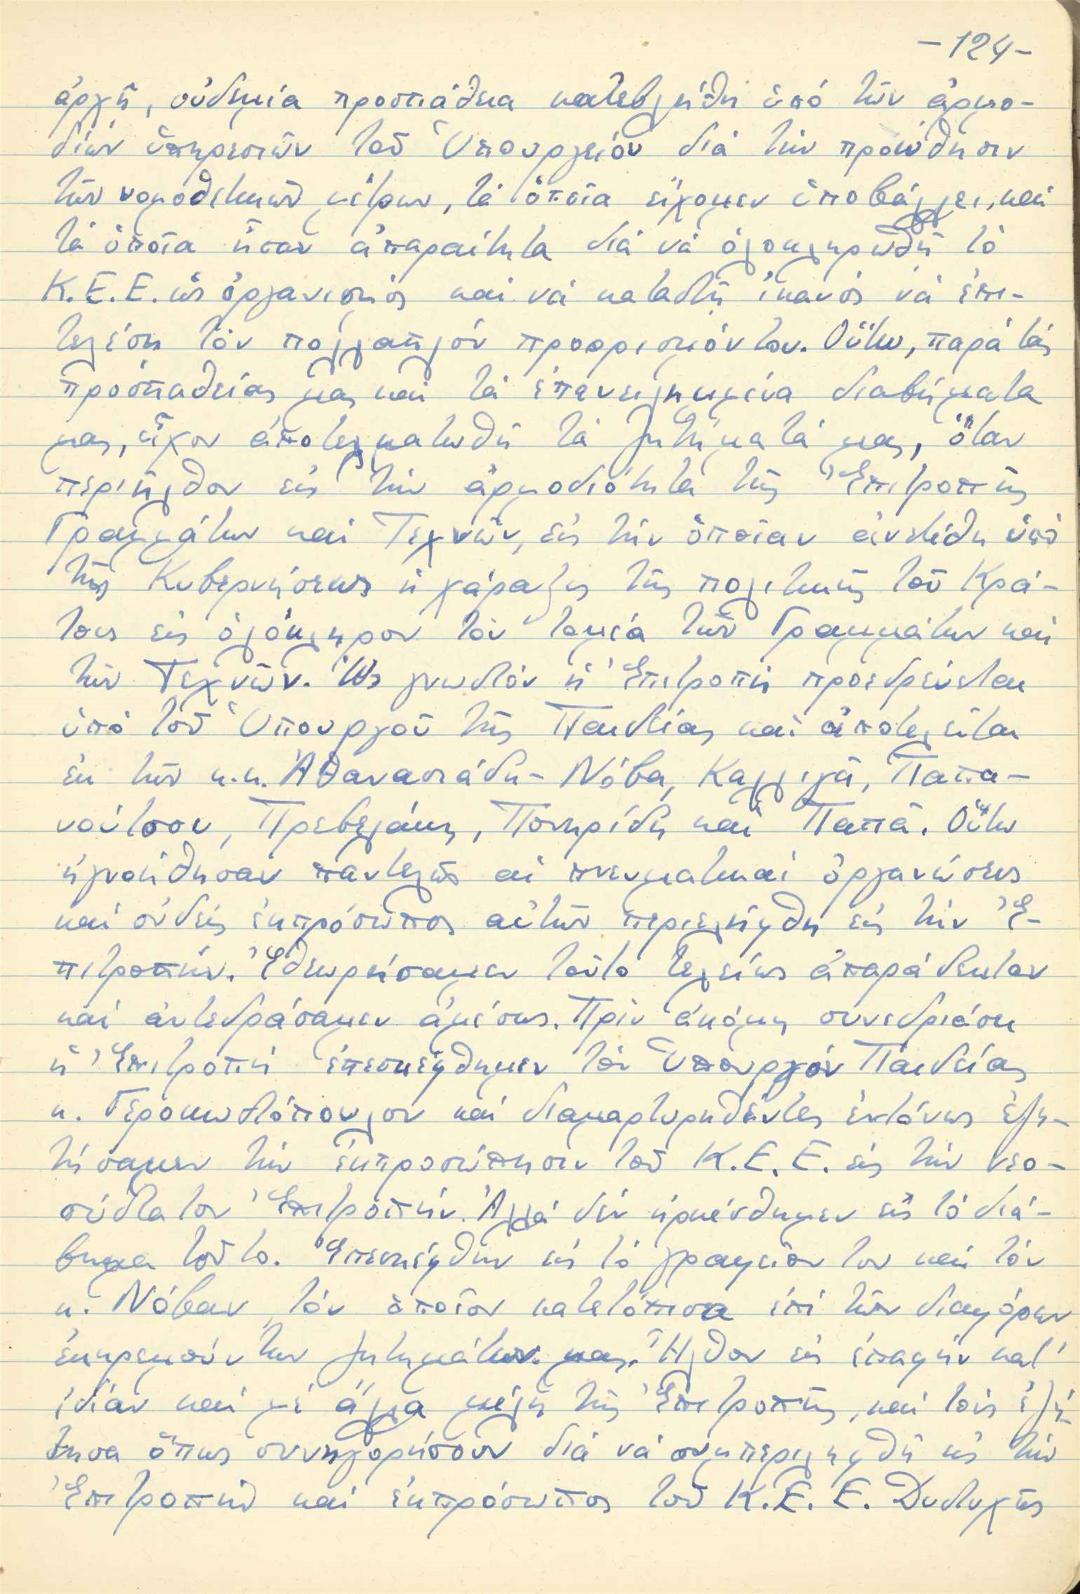 -124-
ἀρχῇ, οὐδεμία προσπάθεια κατεβλήθη ὑπό τῶν ἁρμο-
δίων ὑπηρεσιῶν τοῦ Ὑπουργείου διά τήν προώθησιν
τῶν νομοθετικῶν μέτρων, τά ὁποῖα εἴχομεν ὑποβάλλει, καί
τά ὁποῖα ἦσαν ἀπαραίτητα διά νά ὁλοκληρωθῇ τό
Κ.Ε.Ε. ὡς ὀργανισμός καί νά καταστῇ ἱκανός νά ἐπι-
τελέσῃ τόν πολλαπλόν προορισμόν του. Οὕτω, παρά τάς
προσπαθείας μας καί τά ἐπανειλημμένα διαβήματα
μας, εἶχον ἀποτελματωθῆ τά ζητήματά μας, ὅταν
περιῆλθον εἰς τήν ἁρμοδιότητα τῆς Ἐπιτροπῆς
Γραμμάτων καί Τεχνῶν, εἰς τήν ὁποίαν ἀνετέθη ὑπό
τῆς Κυβερνήσεως ἡ χάραξις τῆς πολιτικῆς τοῦ Κρά-
τους εἰς ὁλόκληρον τόν τομέα τῶν Γραμμάτων καί
τῶν Τεχνῶν. Ὡς γνωστόν ἡ Ἐπιτροπή προεδρεύεται
ὑπό τοῦ Ὑπουργοῦ τῆς Παιδείας καί ἀποτελεῖται
ἐκ τῶν κ.κ. Ἀθανασιάδη- Νόβα, Καλλιγᾶ, Παπα-
νούτσου, Πρεβελάκη, Πονηρίδη καί Παππᾶ. Οὕτω
ἠγνοήθησαν παντελῶς αἱ πνευματικαί ὀργανώσεις
καί οὐδείς ἐκπρόσωπος αὐτῶν περιελήφθη εἰς τήν Ἐ-
πιτροπήν. Ἐθεωρήσαμεν τοῦτο τελείως ἀπαράδεκτον
καί ἀντεδράσαμεν ἀμέσως. Πρίν ἀκόμη συνεδριάσῃ
ἡ Ἐπιτροπή ἐπεσκέφθημεν τόν Ὑπουργόν Παιδείας
κ. Γεροκωστόπουλον καί διαμαρτυρηθέντες ἐντόνως ἐζη-
τήσαμεν τήν ἐκπροσώπησιν τοῦ Κ.Ε.Ε. εἰς τήν νεο-
σύστατον Ἐπιτροπήν. Ἀλλά δέν ἠρκέσθημεν εἰς τό διά-
βημα τοῦτο. Ἐπεσκέφθην εἰς τό γραφεῖον του καί τόν
κ. Νόβαν, τόν ὁποῖον κατετόπισα ἐπί τῶν διαφόρων
ἐκκρεμούντων ζητημάτων μας. Ἦλθον εἰς ἐπαφήν κατ'
ἰδίαν καί μέ ἄλλα μέλη τῆς Ἐπιτροπῆς, καί τούς ἐζή-
τησα ὅπως συνηγορήσουν διά νά συμπεριληφθῇ εἰς τήν
Ἐπιτροπήν καί ἐκπρόσωπος τοῦ Κ.Ε.Ε. Δυστυχῶς